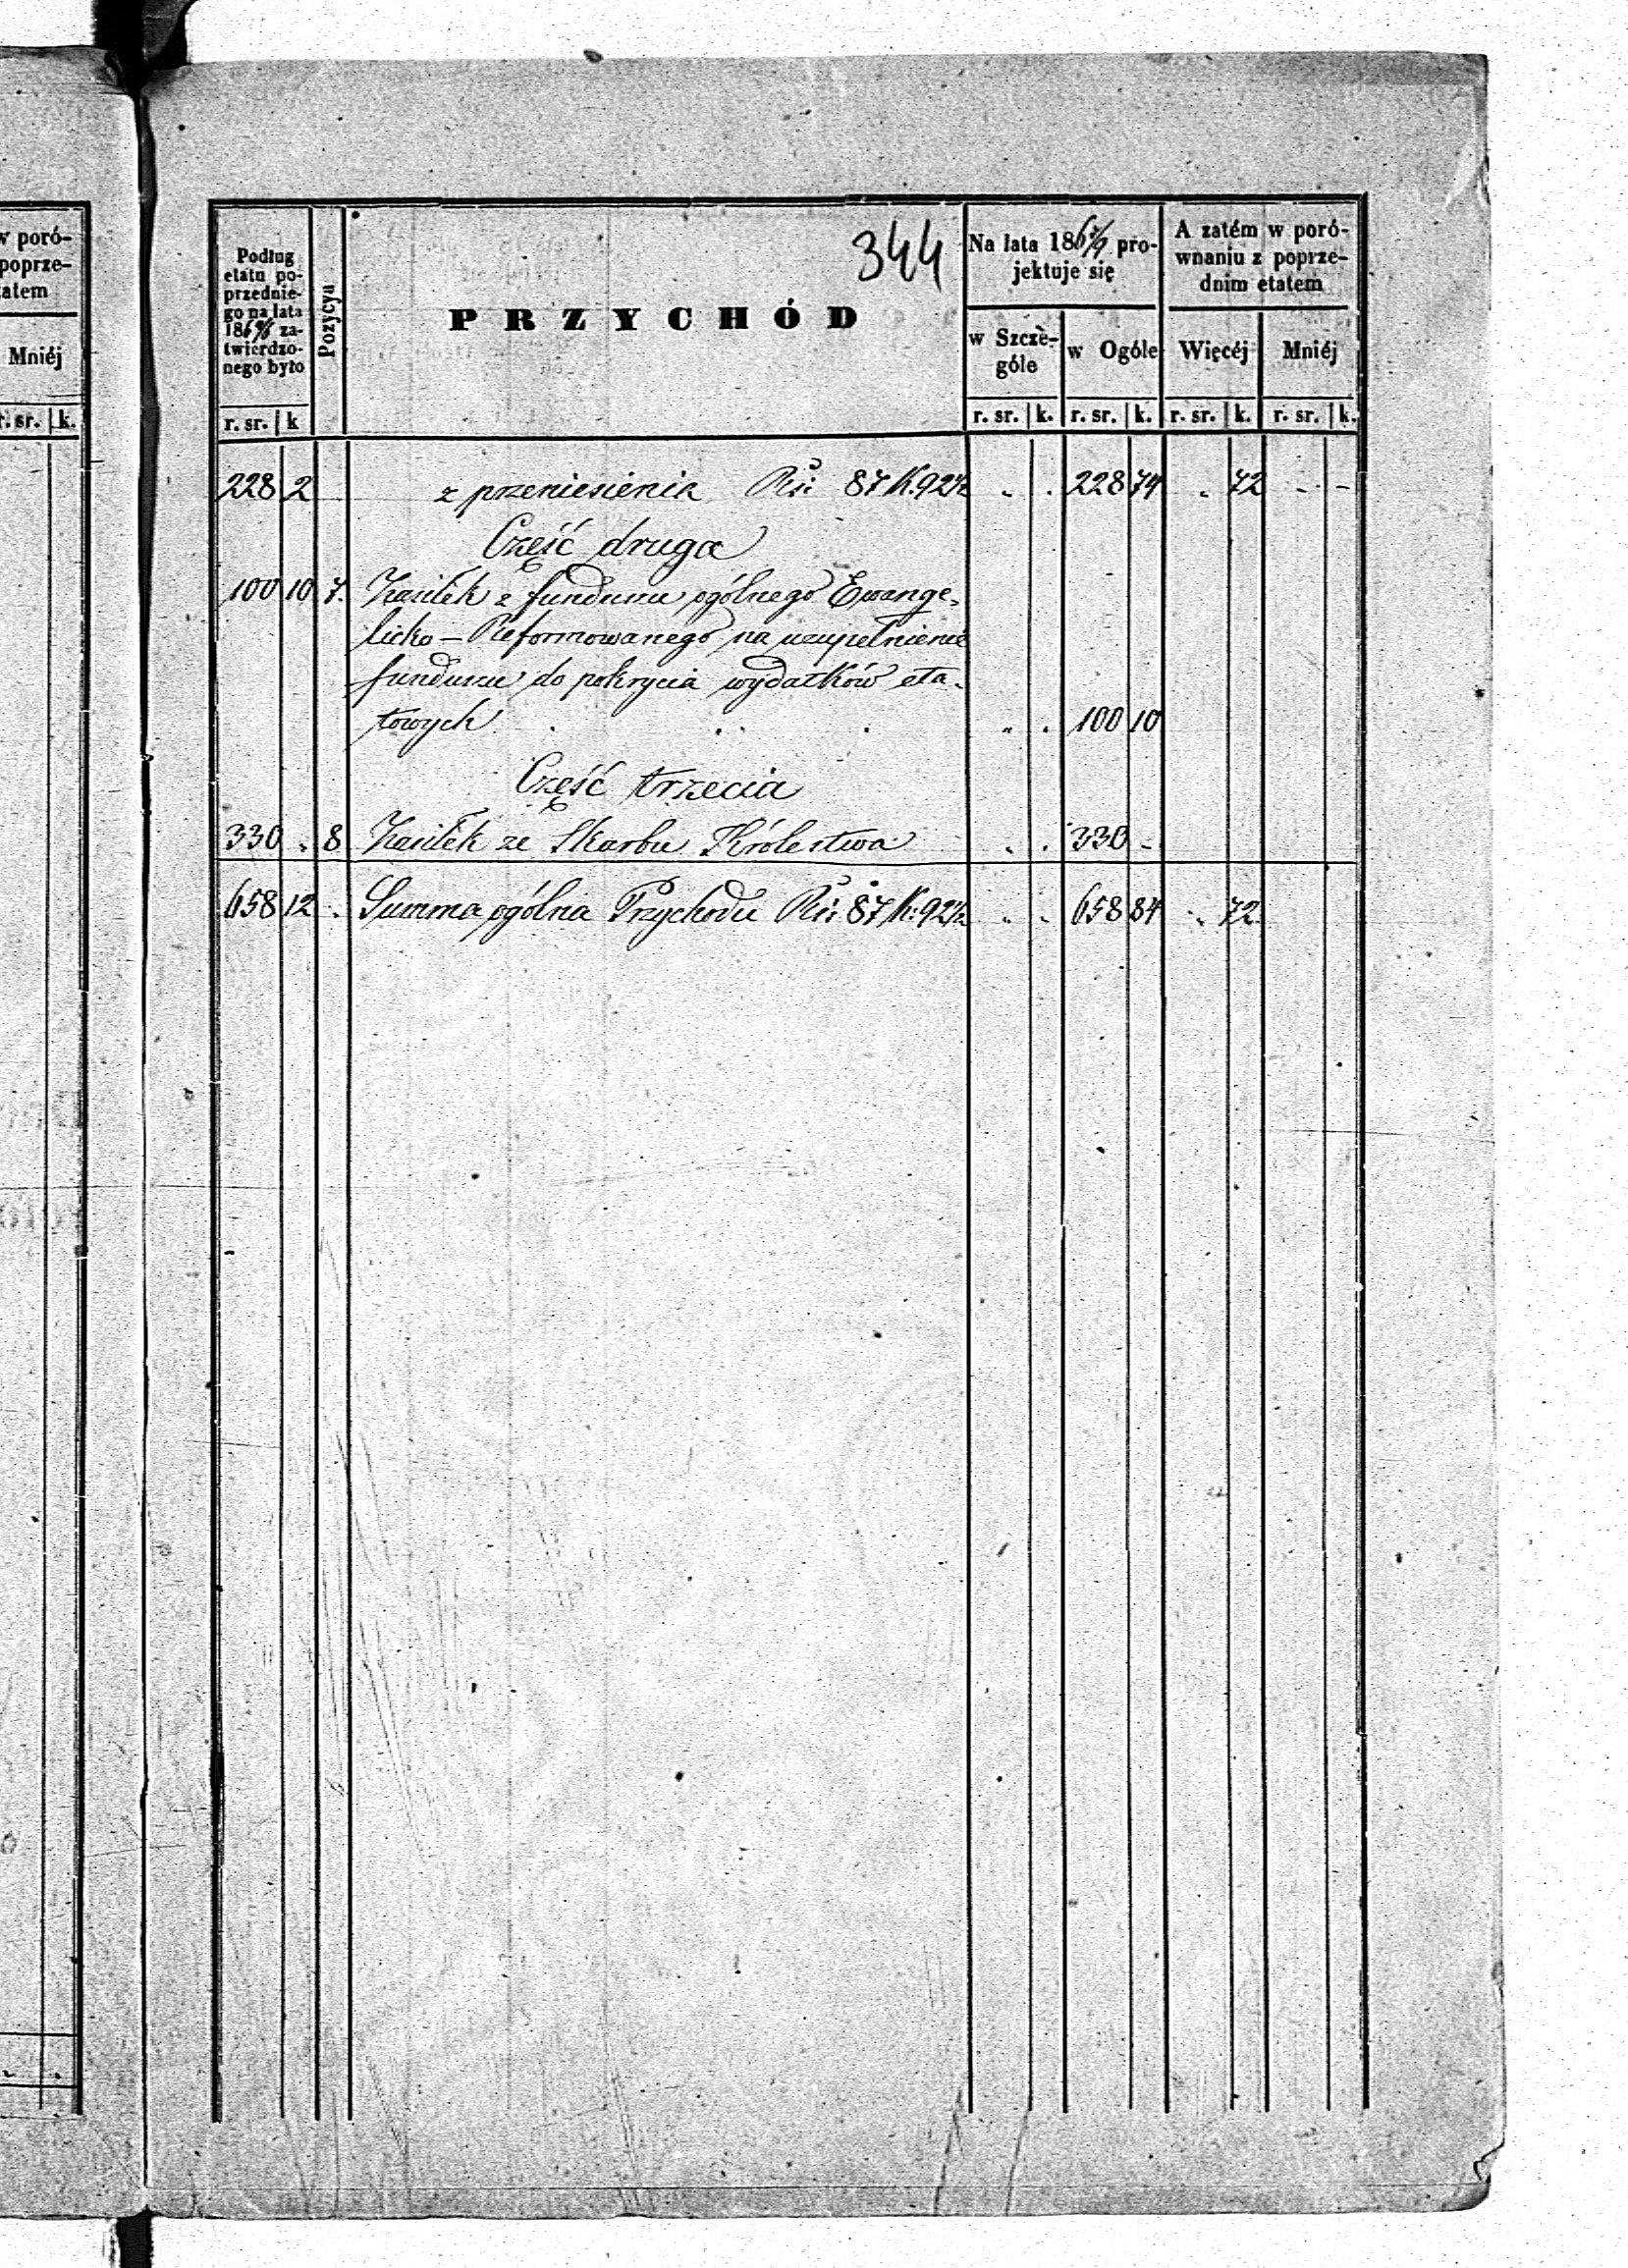 w poró-
poprze-
atem
Mniéj
r. sr. k.
344
Podług
etatu po-
przednie-
go na lata
186 za-
twierdzo-
nego było
r. sr. k
Pozycya
PRZYCHÓD
Na lata 186 pro-
jektuje się
w Szczè-
góle
w Ogóle
r. sr. k. r. sr. k.
A zatém w poró-
wnaniu z poprze-
dnim etatem
Więcéj Mniéj
r. sr. k. r. sr. k.
228 2 z przeniesienia Rs: 87 K. 92½ " . 228 74 " 72 - -
Część druga
100 10 7. Zasiłek z funduszu ogólnego Ewange-
licko-Reformowanego na uzupełnienie
funduszu do pokrycia wydatków eta-
towych . . . . " . 100 10
Część trzecia
330 " 8 Zasiłek ze Skarbu Królestwa " . 330 -
658 12 . Summa ogólna Przychodu Rs: 87 K: 92½ " . 658 84 " 72